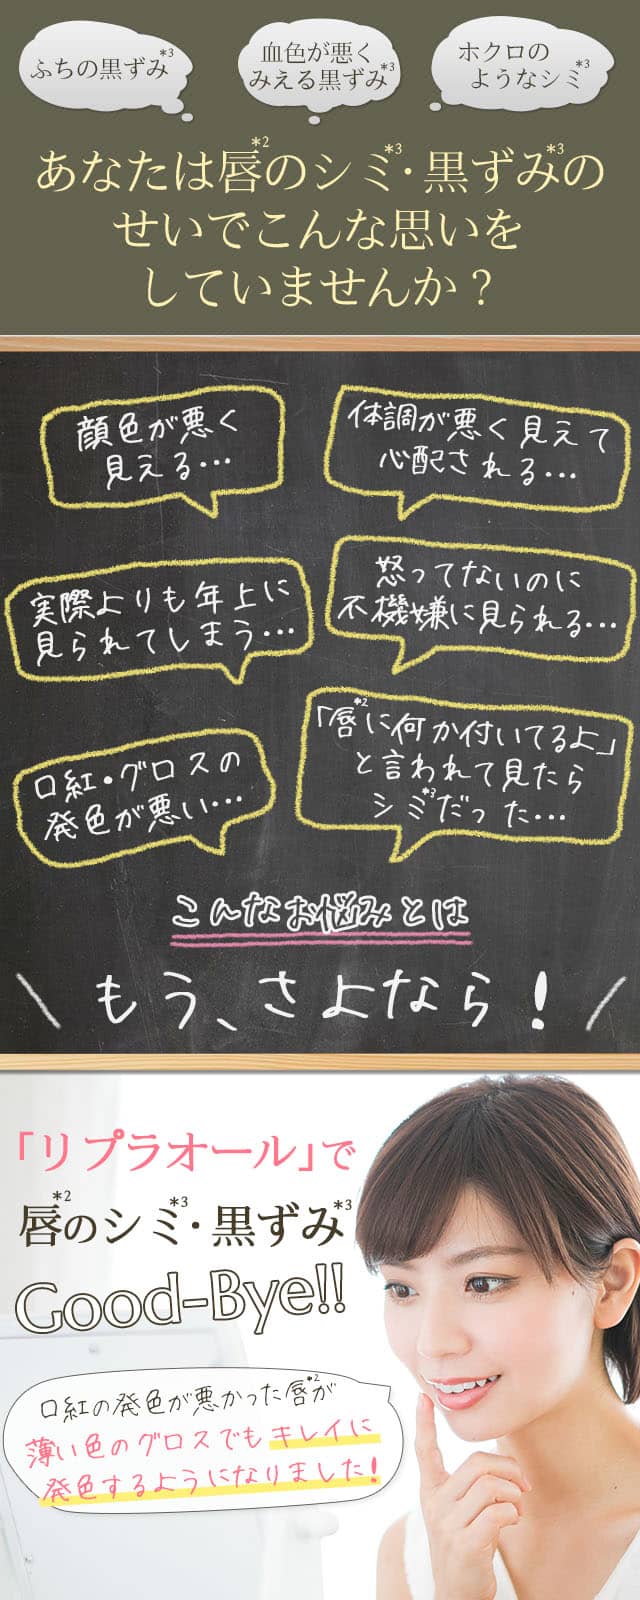 ふちの黒ずみ*3
血色が悪く
みえる黒ずみ*3
ホクロの
ようなシミ*3
あなたは唇*2のシミ*3・黒ずみ*3の
せいでこんな思いを
していませんか?
顔色が悪く
見える…
体調が悪く見えて
心配される…
実際よりも年上に
見られてしまう…
怒ってないのに
不機嫌に見られる…
口紅・グロスの
発色が悪い…
「唇*2に何か付いてるよ」
と言われて見たら
シミ*3だった…
こんなお悩みとは
\ もう、さよなら! /
「リプラオール」で
唇*2のシミ*3・黒ずみ*3
Good-Bye!!
口紅の発色が悪かった唇*2が
薄い色のグロスでもキレイに
発色するようになりました!